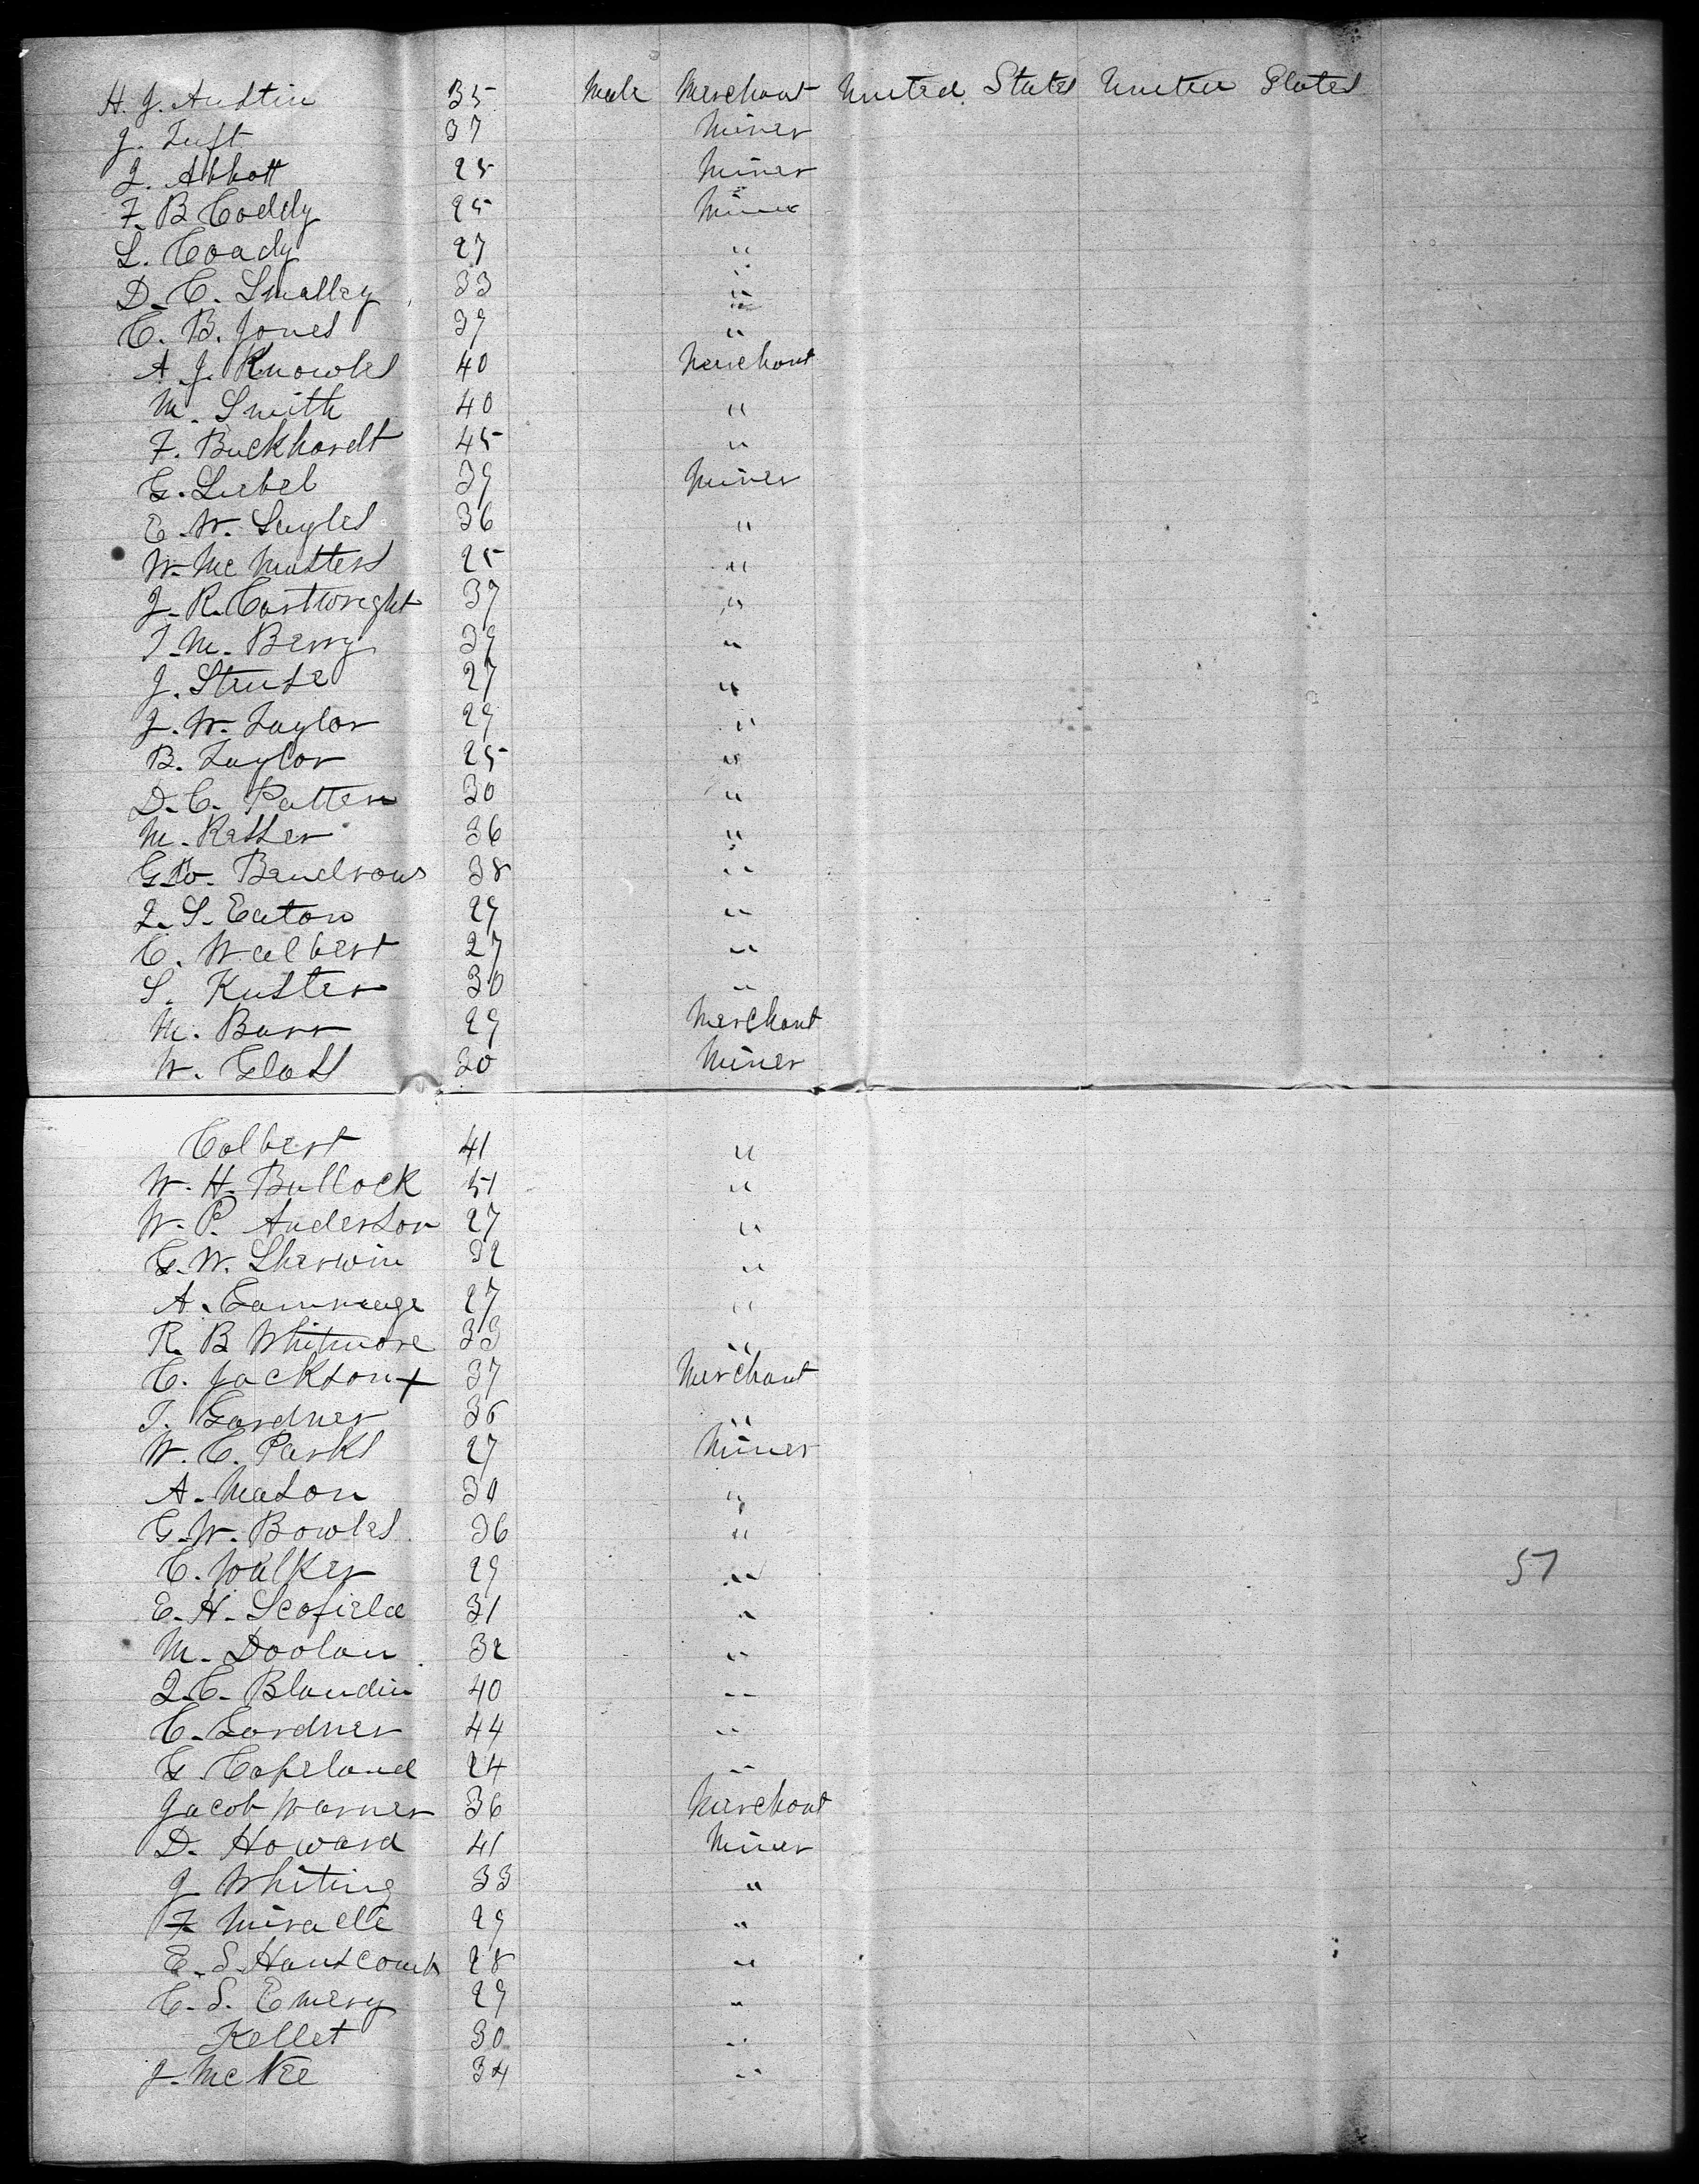 H. J. Austin 35 Male Merchant United States United States
J. Tuft 37 Miner
J. Abbott 25 Miner
F. B Coddy 25 Miner
L. Coady 27 "
D. C. Smalley 33 "
C. B. Jones 39 "
A. J. Knowles 40 Merchant
M. Smith 40 "
F. Buckhardt 45 "
G. Liebel 39 Miner
E. W. Sayles 36 "
W. Mc Masters 25 "
J. R. Cartwright 37 "
T. M. Berry 39 "
J. Struse 27 "
J. W. Taylor 29 "
B. Taylor 25 "
D. C. Patten 30 "
M. Resser 36 "
G. W. 38 "
L. S. Eaton 29 "
C. Walbert 27 "
S. Kuster 30 "
M. Barr 29 Merchant
W. Glass 30 Miner
Colbert 41 "
W. H. Bullock 51 "
W. P. Anderson 27 "
G. W. Sherwin 32 "
A. Gammage 27 "
R. B Whitmore 33 "
C. Jackson + 37 Merchant
T. Gardner 36 "
W. C. Parks 27 Miner
A. Mason 30 "
G. W. Bowles 36 "
C. Walker 29 "
E. H. Scofield 31 "
M. Doolan 32 "
L. C. Blandin 40 "
C. Gardner 44 "
G. Copeland 24 "
Jacob Warner 36 Merchant
D. Howard 41 Miner
J. Whiting 33 "
F. Miralle 29 "
E. S. Hanscomb 28 "
C. S. Emery 29 "
Kellet 30 "
J. Mc Nee 34 "
51